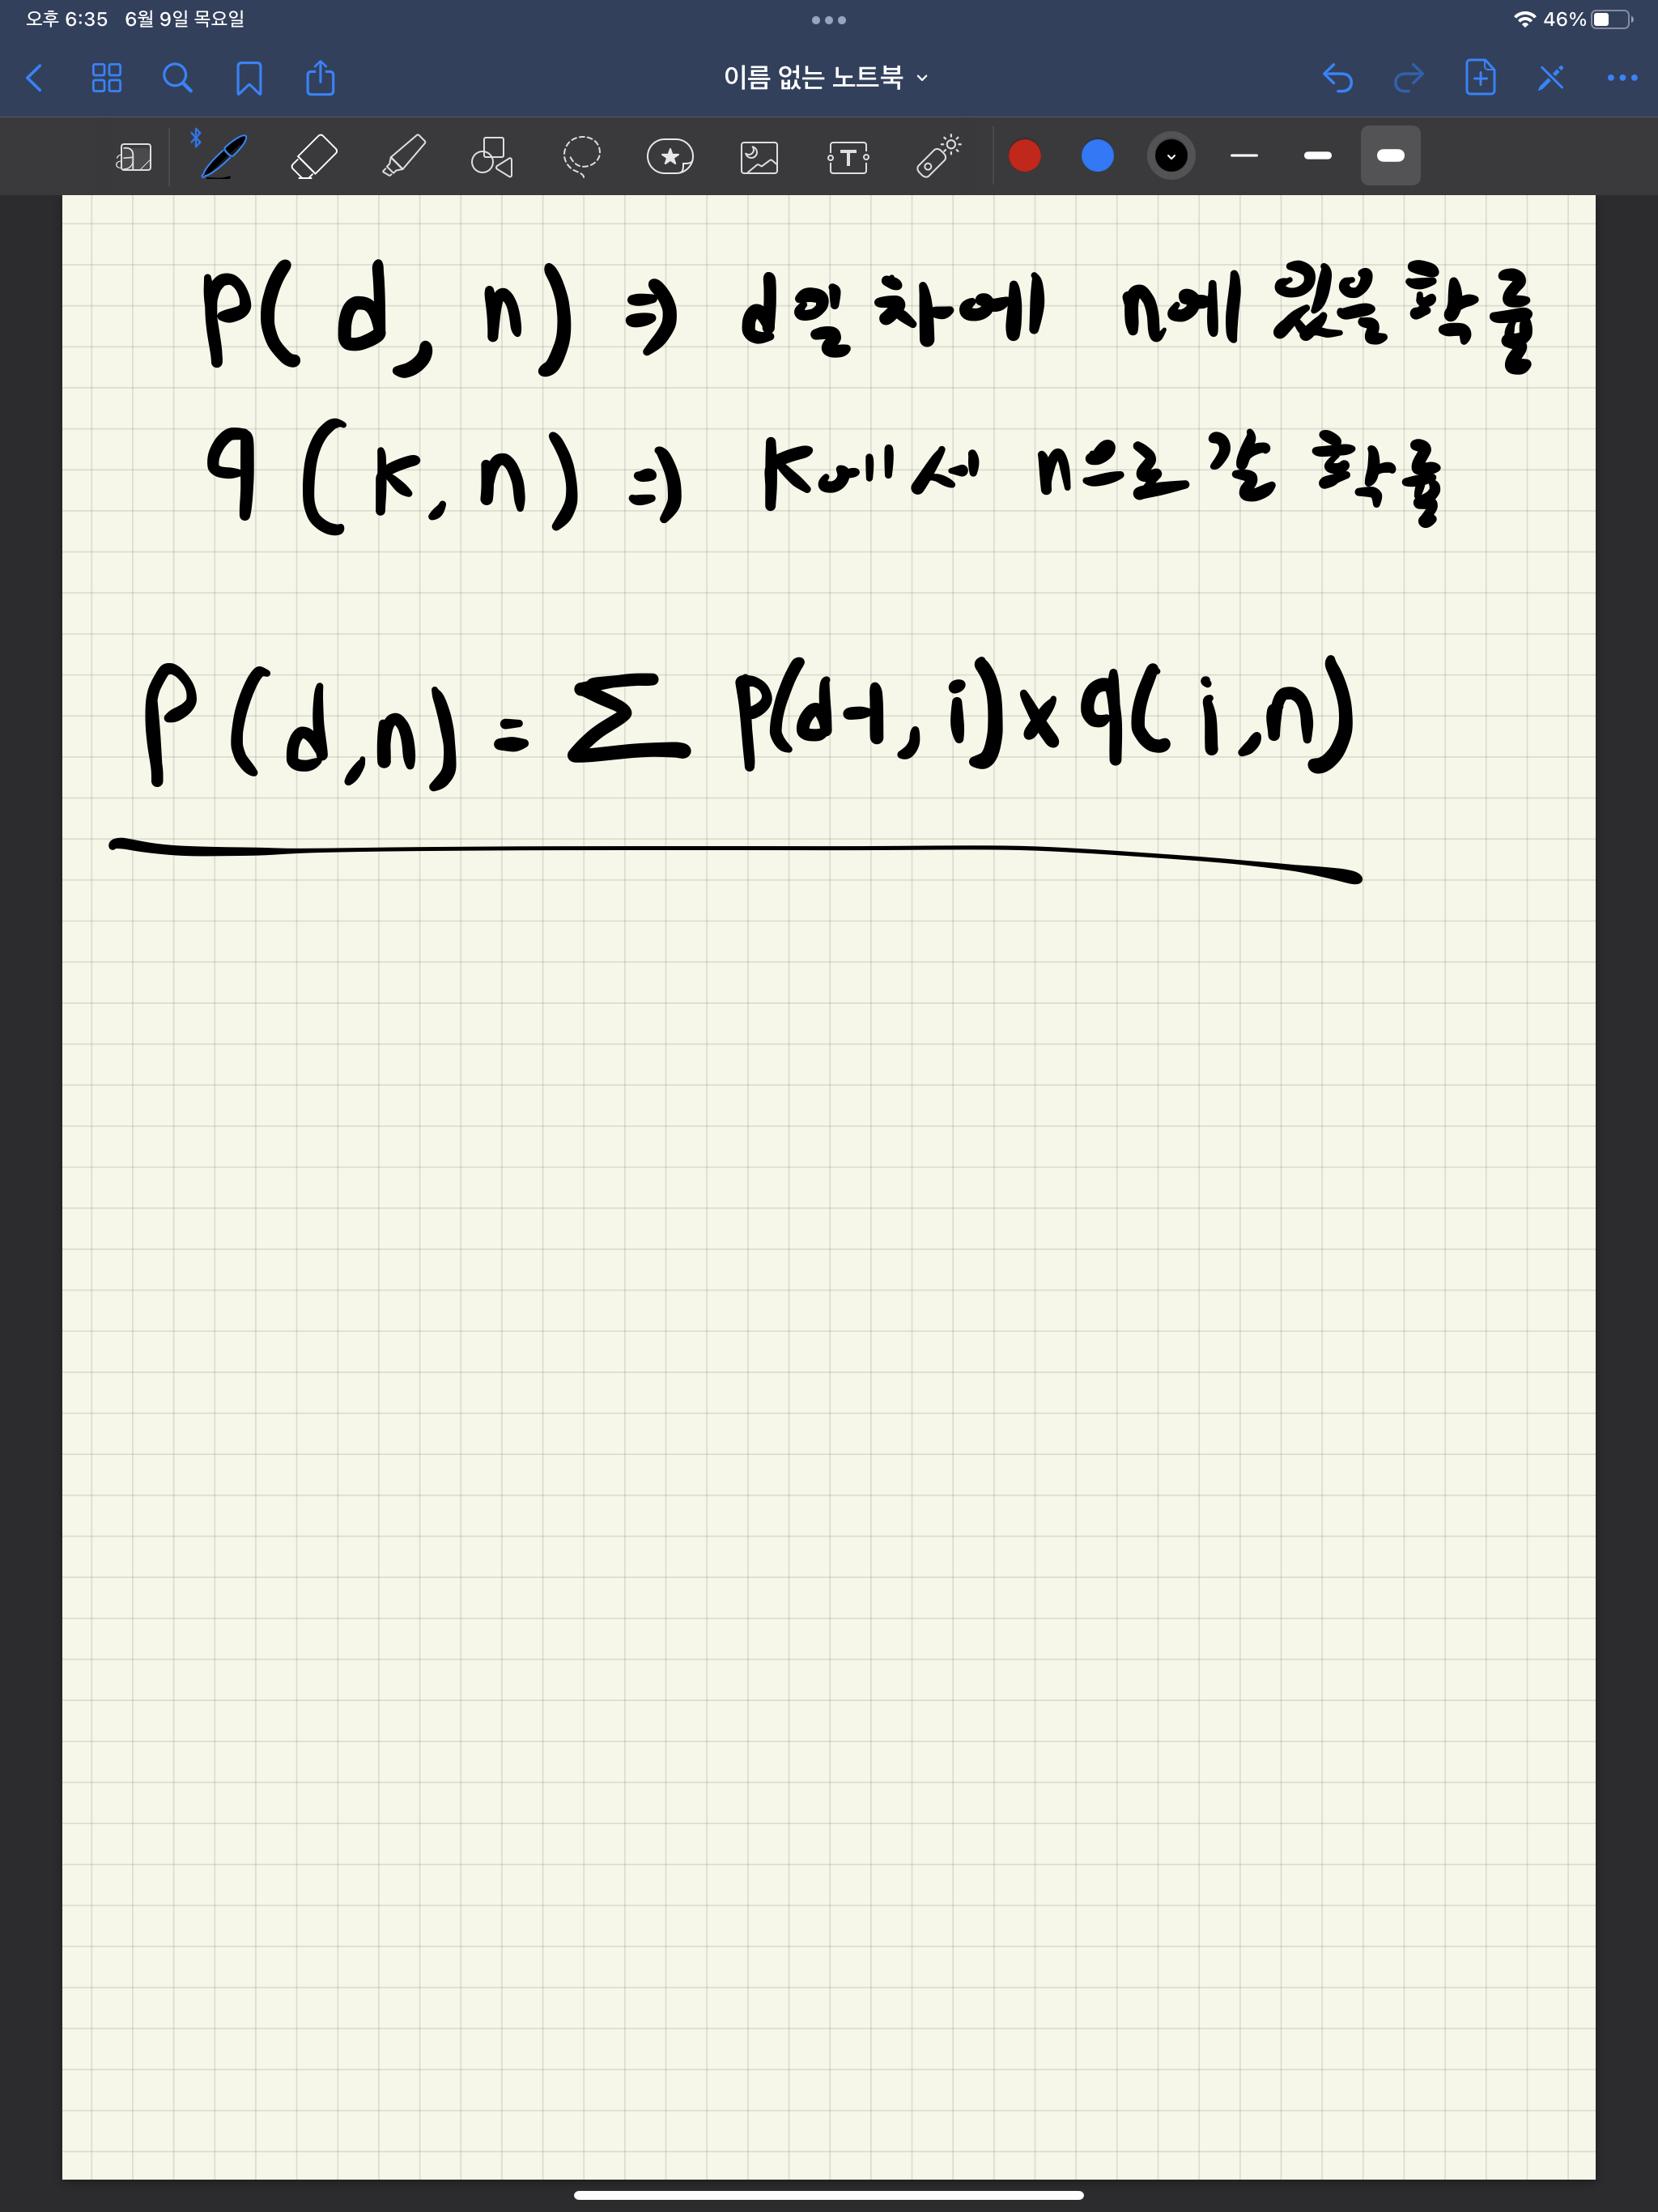 오후 6:35 6월 9일 목요일 46%
이름 없는 노트북
P(d, n) ⇒ d일 차에 n에 있을 확률
q(k, n) ⇒ k에서 n으로 갈 확률
P(d,n) = Σ P(d-1, i) x q(i,n)